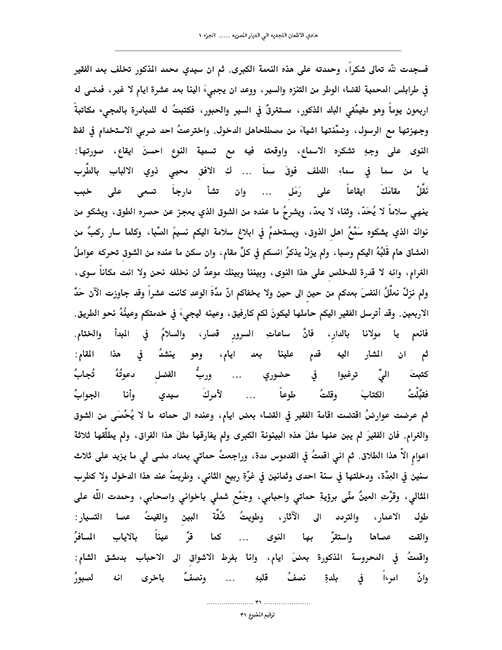 حادي الاظعان النجديه الي الديار المصريه ..... الجزء ١
فسجدت لله تعالى شكراً، وحمدته على هذه النعمة الكبرى. ثم ان سيدي محمد المذكور تخلف بعد الفقير
في طرابلس المحمية لقضاء الوطر من التنزه والسير، ووعد ان يجيء الينا بعد عشرة ايام لا غير، فمضى له
اربعون يوماً وهو مقيمٌفي البك المذكور، مستغرقٌ في السير والحبور، فكتبتُ له للمبادرة بالمجيء مكاتبةً
وجهزتها مع الرسول، وضمَّنتها اشياءَ من مصطلحاهل الدخول. واخترعتُ احد ضربي الاستخدام في لفظ
النوى على وجهٍ تشكره الاسماع، واوقعته فيه مع تسمية النوع احسنَ ايقاع، صورتها:
يا من سما في سماءِ اللطف فوقَ سماً ... كِ الافقِ محيي ذوي الالباب بالطَّرب
نَقِّلْ مقامَكَ ايقاعاً على رَمَلٍ ... وان تشأ دارجاً تسمى على خببِ
ينهي سلاماً لا يُحَدّ، وثناء لا يعدّ، ويشرحُ ما عنده من الشوق الذي يعجز عن حصره الطوق، ويشكو من
نواك الذي يشكوه سَمْعُ اهل الذوق، ويستخدمُ في ابلاغ سلامة اليكم نسيمَ الصَّبا، وكلما سار ركبٌ من
العشاق هام قَلبُهُ اليكم وصبا، ولم يزلْ يذكرُ انسكم في كلّ مقام، وان سكن ما عنده من الشوق تحركه عواملُ
الغرام، وانه لا قدرة للمخلص على هذا النوى، وبيننا وبينك موعدٌ لن نخلفه نحن ولا انت مكاناً سوى،
ولم نزلْ نعلِّلُ النفسَ بعدكم من حين الى حين ولا يخفاكم انّ مدّةَ الوعدِ كانت عشراً وقد جاوزت الآن حَدَّ
الاربعين. وقد أترسل الفقير اليكم حاملَها ليكونَ لكم كارفيق، وعينه ليجيءَ في خدمتكم وعينُهُ نحو الطريق.
فانعم يا مولانا بالدارِ، فانَّ ساعاتِ السرورِ قصار، والسلامُ في المبدأ والختام.
ثم ان المشار اليه قدم علينا بعد ايام، وهو ينشدُ في هذا المقام:
كتبتَ اليَّ ترغبوا في حضوري ... وربُّ الفضلِ دعوتُهُ تُجابُ
فقبَّلتُ الكتابَ وقلتُ طوعاً ... لأمركَ سيدي وأنا الجوابُ
ثم عرضت عوارضُ اقتضت اقامة الفقير في القضاء بعض ايام، وعنده الى حماته ما لا يُحْصَى من الشوق
والغرام. فان الفقيرَ لم يبن عنها مثلَ هذه البينونة الكبرى ولم يفارقها مثلَ هذا الفراق، ولم يطلّقها ثلاثة
اعوام الاّ هذا الطلاق. ثم اني اقمتُ في القدموس مدة، وراجعتُ حماتي بعداد مضى لي ما يزيد على ثلاث
سنين في العِدَّة، ودخلتها في سنة احدى وثمانين في غرّة ربيع الثاني، وطربتُ عند هذا الدخول ولا كطرب
المثالي، وقرّتِ العينُ منّى برؤيةِ حماتي واحبابي، وجَمْعِ شملي باخواني واصحابي، وحمدت اللّه على
طول الاعمار، والتردد الى الآثار، وطويتُ شُقَّةَ البينِ والقيتُ عصا التسيار:
والقت عصاها واستقرَّ بها النوى ... كما قرَّ عيناً بالايابِ المسافرُ
واقمتُ في المحروسة المذكورة بعضَ ايام، وانا بفرط الاشواقِ الى الاحباب بدمشق الشام:
وانّ امرءاً في بلدةٍ نصفُ قلبهِ ... ونصفٌ باخرى انه لصبورُ
..................... ٣١ .....................
ترقيم المشروع ٣١